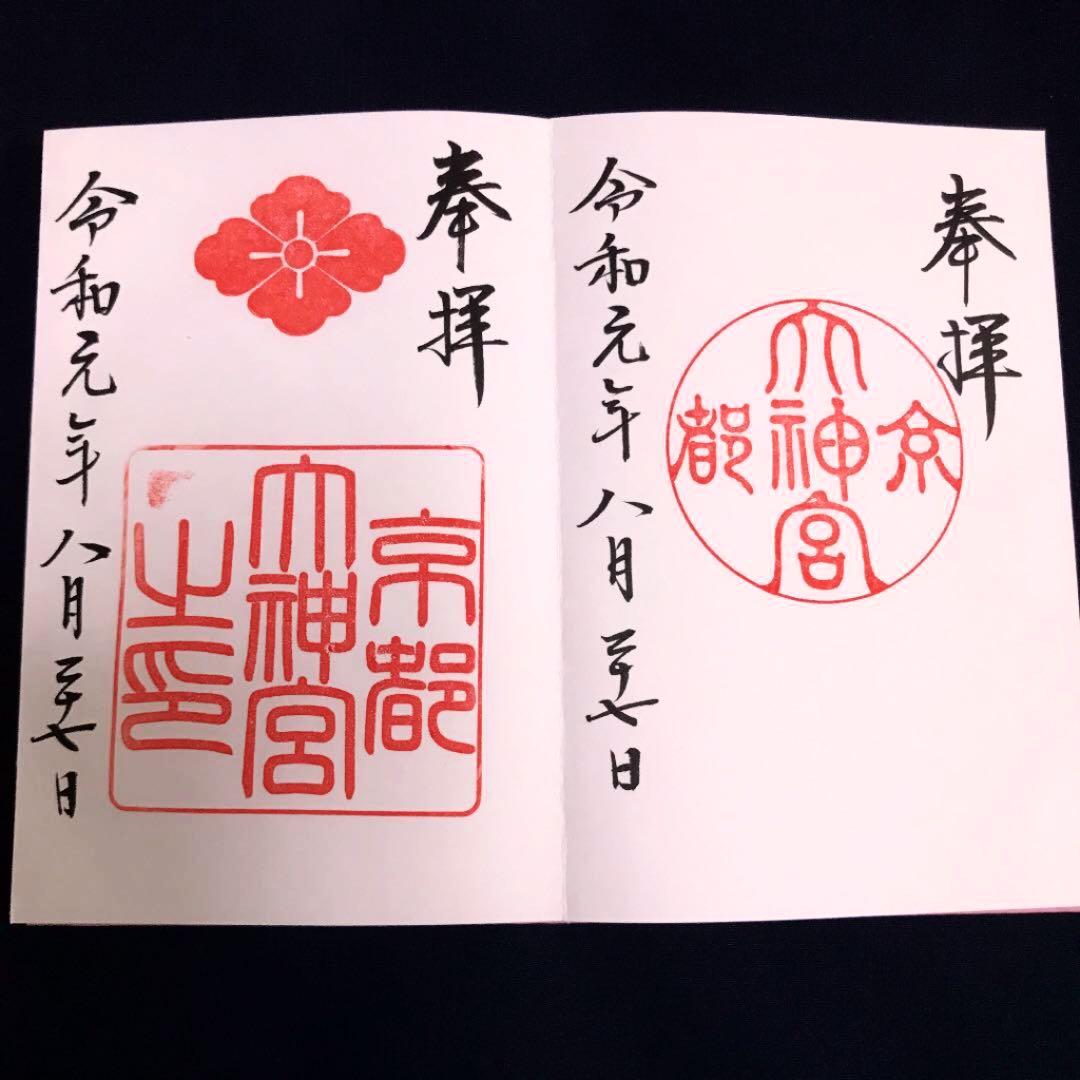 奉拝
京都
大神宮
令和元年八月二十七日
奉拝
京都
大神宮
之印
令和元年八月二十七日